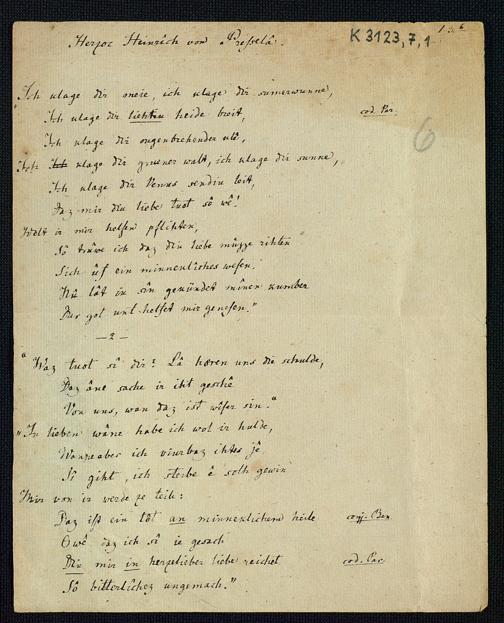 K 3123,7,1
Herzoc Heinrich von Presselâ.
6
Ich clage dir meie, ich clage dir sumerwunne,
Ich clage dir liehtiu heide breit, cod. Par.
Ich clage dir ougenbrehender clê,
Ich clage dir gruener walt, ich clage dir sunne,
Ich clage dir Venus sendiu leit,
Daz mir diu liebe tuot sô wê!
Welt ir mir helfen pflihten,
Sô trûwe ich daz diu liebe müeze rihten
Sich ûf ein minnenlîches wesen.
Nû lât iu sîn gekündet mînen kumber
Dur got unt helfet mir genesen."
— 2 —
"Waz tuot si dir? Lâ hœren uns die schulde,
Daz âne sache ir iht geschê
Von uns, wan daz ist wîser sin."
"In lieben wâne habe ich wol ir hulde,
Wanne aber ich vürbaz ihtes jê,
Si giht, ich sterbe ê solh gewin
Mir von ir werde ze teile:
Daz ist ein tôt an minnenlîchem heile conj. Ben
Owê daz ich si ie gesach
Diu mir in herzelieber liebe reichet cod. Par.
Sô bitterlîchez ungemach."